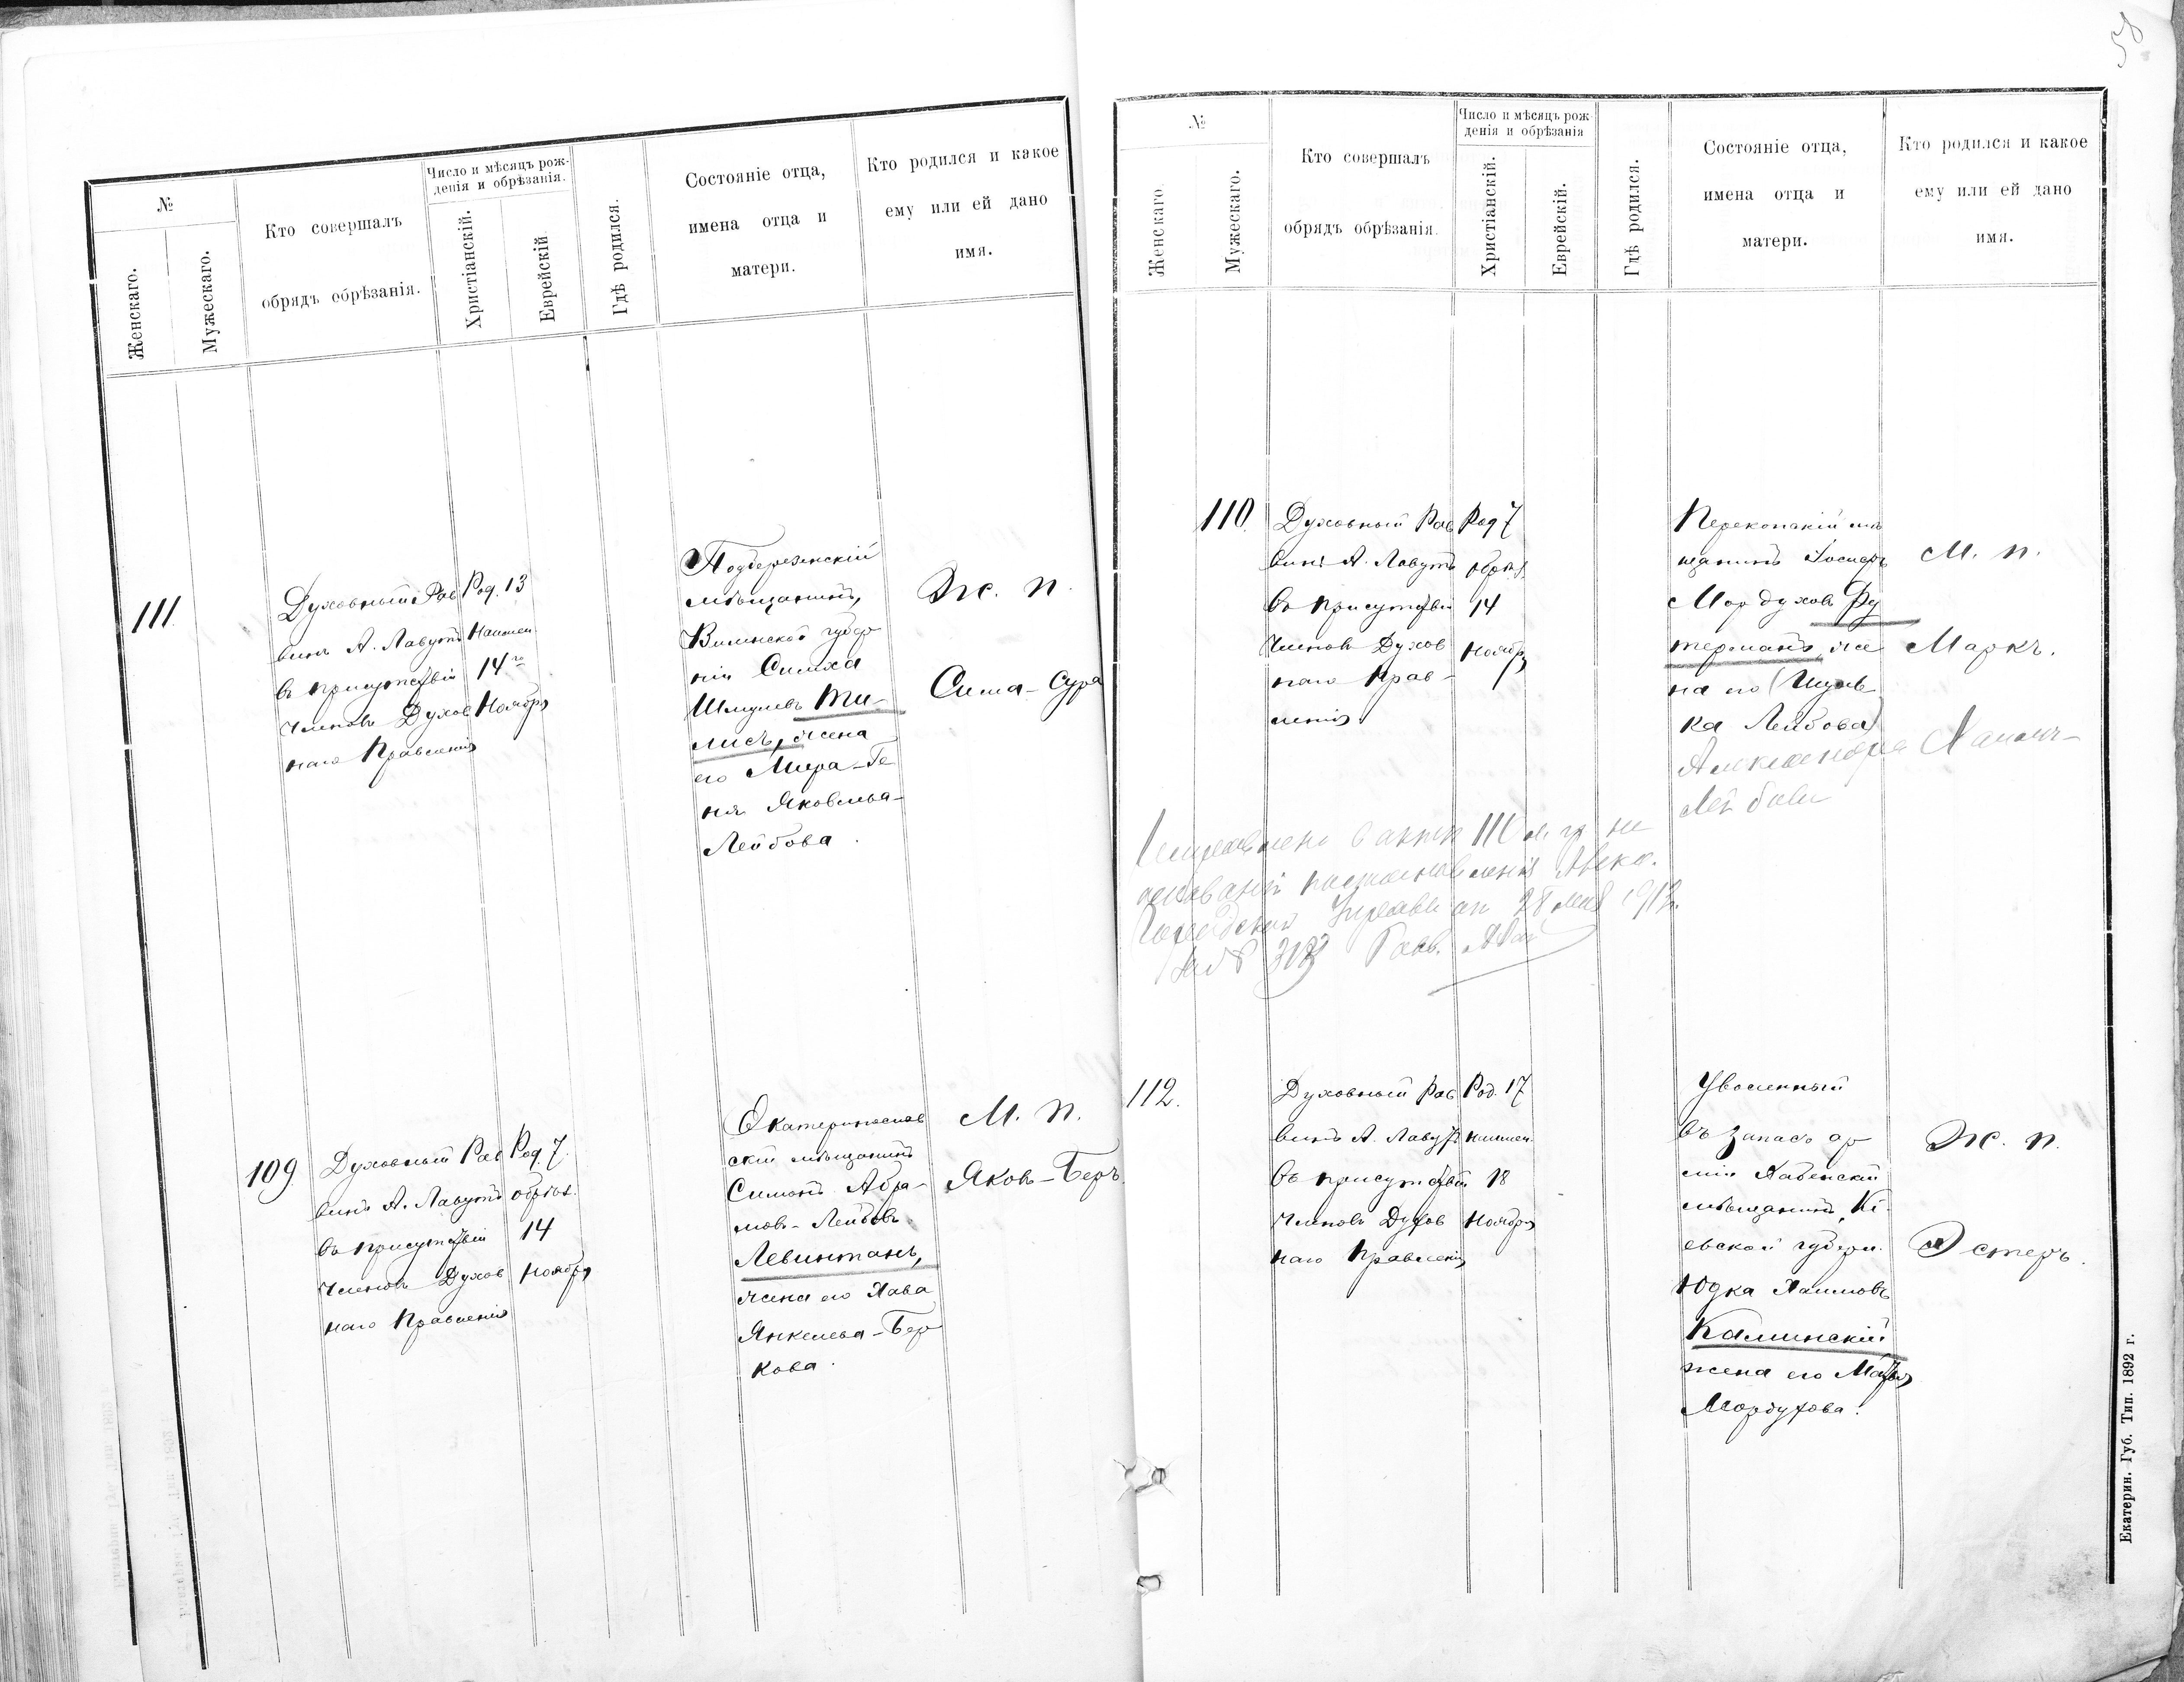 58
№
Женскаго.
Мужескаго.
Кто совершалъ
обрядъ обрѣзанія.
Число и мѣсяцъ рож-
денія и обрѣзанія.
Христіанскій.
Еврейскій
Гдѣ родился.
Состояніе отца,
имена отца и
матери.
Кто родился и какое
ему или ей дано
имя.
111
Духовный Рав
винъ А. Лавутъ
въ присутствіи
членовъ Духов
наго Правленія
Род. 13
Наимен
14го
Ноября
Подберезскій
мѣщанинъ,
Виленской губер
ніи Симха
Шмулевъ Ти-
лисъ, жена
его Мира-Ге
ня Яковлева-
Лейбова.
Ж. п.
Сима-Сура
109.
Духовный Рав
винъ А. Лавутъ
въ присутствіи
членовъ Духов
наго Правленія
Род. 7.
обрѣз.
14
Ноября
Екатеринослав
скій мѣщанинъ
Симонъ Абра-
мов-Лейбовъ
Левинтанъ,
жена его Хава
Янкелева-Бер
кова.
М. п.
Яковъ-Беръ.
№
Женскаго.
Мужескаго.
Кто совершалъ
обрядъ обрѣзанія.
Число и мѣсяцъ рож-
денія и обрѣзанія
Христіанскій.
Еврейскій.
Гдѣ родился.
Состояніе отца,
имена отца и
матери.
Кто родился и какое
ему или ей дано
имя.
110.
Духовный Рав
винъ А. Лавутъ
въ присутствіи
членовъ Духов
наго Прав-
ленія.
Род 7
обрѣз.
14
Ноября
мѣ
щанинъ
Мордуховъ Фу
терманъ, же
на его
ка Лейбова)
М. п.
Маркъ.
Лейбова
28 мая 1913
112.
Духовный Рав
винъ А. Лавутъ
въ присутствіи
членовъ Духов
наго Правленія
Род. 17
наимен.
18
Ноября
Уволенный
въ запасъ ар
міи
мѣщанинъ, Кі
евской губерн.
Юдка Хаимовъ
Калинскій
жена его
Мордухова.
Ж. п.
Эстеръ.
Екатерин. Губ. Тип. 1892 г.